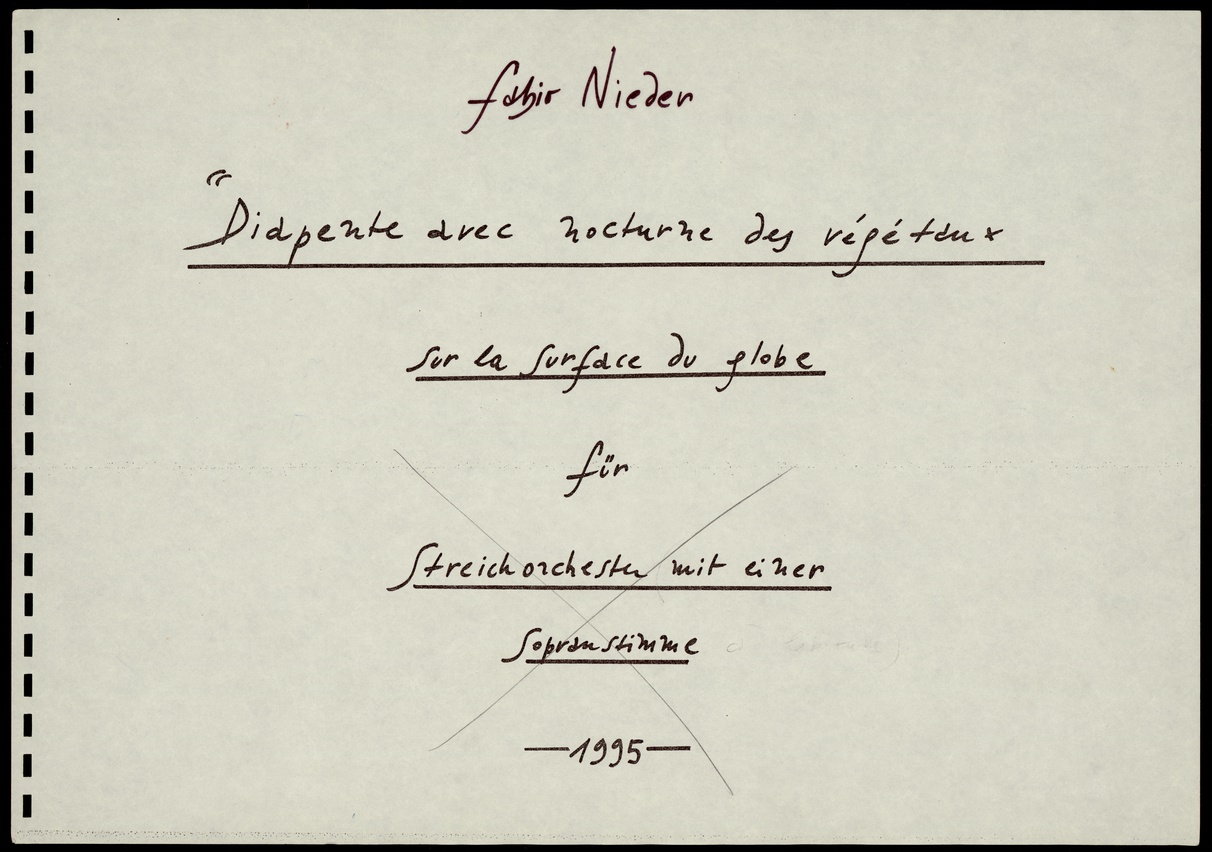 Fabio Nieder
"Diapente avec nocturne des végétaux
sur la surface du globe
für
Streichorchester mit einer
Sopranstimme
—1995—